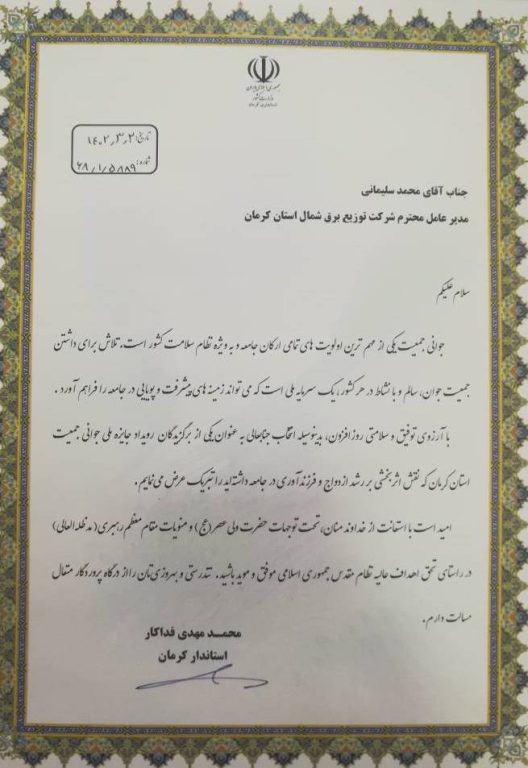 جمهوری اسلامی ایران
وزارت کشور
استانداری کرمان
تاریخ: ۱۴۰۲٫۳٫۲
شماره: ۶۸٫۱٫۵۸۸۹
جناب آقای محمد سلیمانی
مدیر عامل محترم شرکت توزیع برق شمال استان کرمان
سلام علیکم
جوانی جمعیت یکی از مهم ترین اولویت های تمامی ارکان جامعه و به ویژه نظام سلامت کشور است، تلاش برای داشتن
جمعیت جوان، سالم و با نشاط در هر کشور، یک سرمایه ملی است که می تواند زمینه های پیشرفت و پویایی در جامعه را فراهم آورد .
با آرزوی توفیق و سلامتی روز افزون، بدینوسیله انتخاب جنابعالی به عنوان یکی از برگزیدگان رویداد جایزه ملی جوانی جمعیت
استان کرمان که نقش اثر بخشی بر رشد ازدواج و فرزند آوری در جامعه داشته اید را تبریک عرض می نمایم.
امید است با استعانت از خداوند منان، تحت توجهات حضرت ولی عصر (عج) و منویات مقام معظم رهبری (مد ظله العالی)
در راستای تحقق اهداف عالیه نظام مقدس جمهوری اسلامی موفق و موید باشید. تندرستی و بهروزی تان را از درگاه پروردگار متعال
مسالت دارم.
محمـد مهدی فداکار
استاندار کرمان